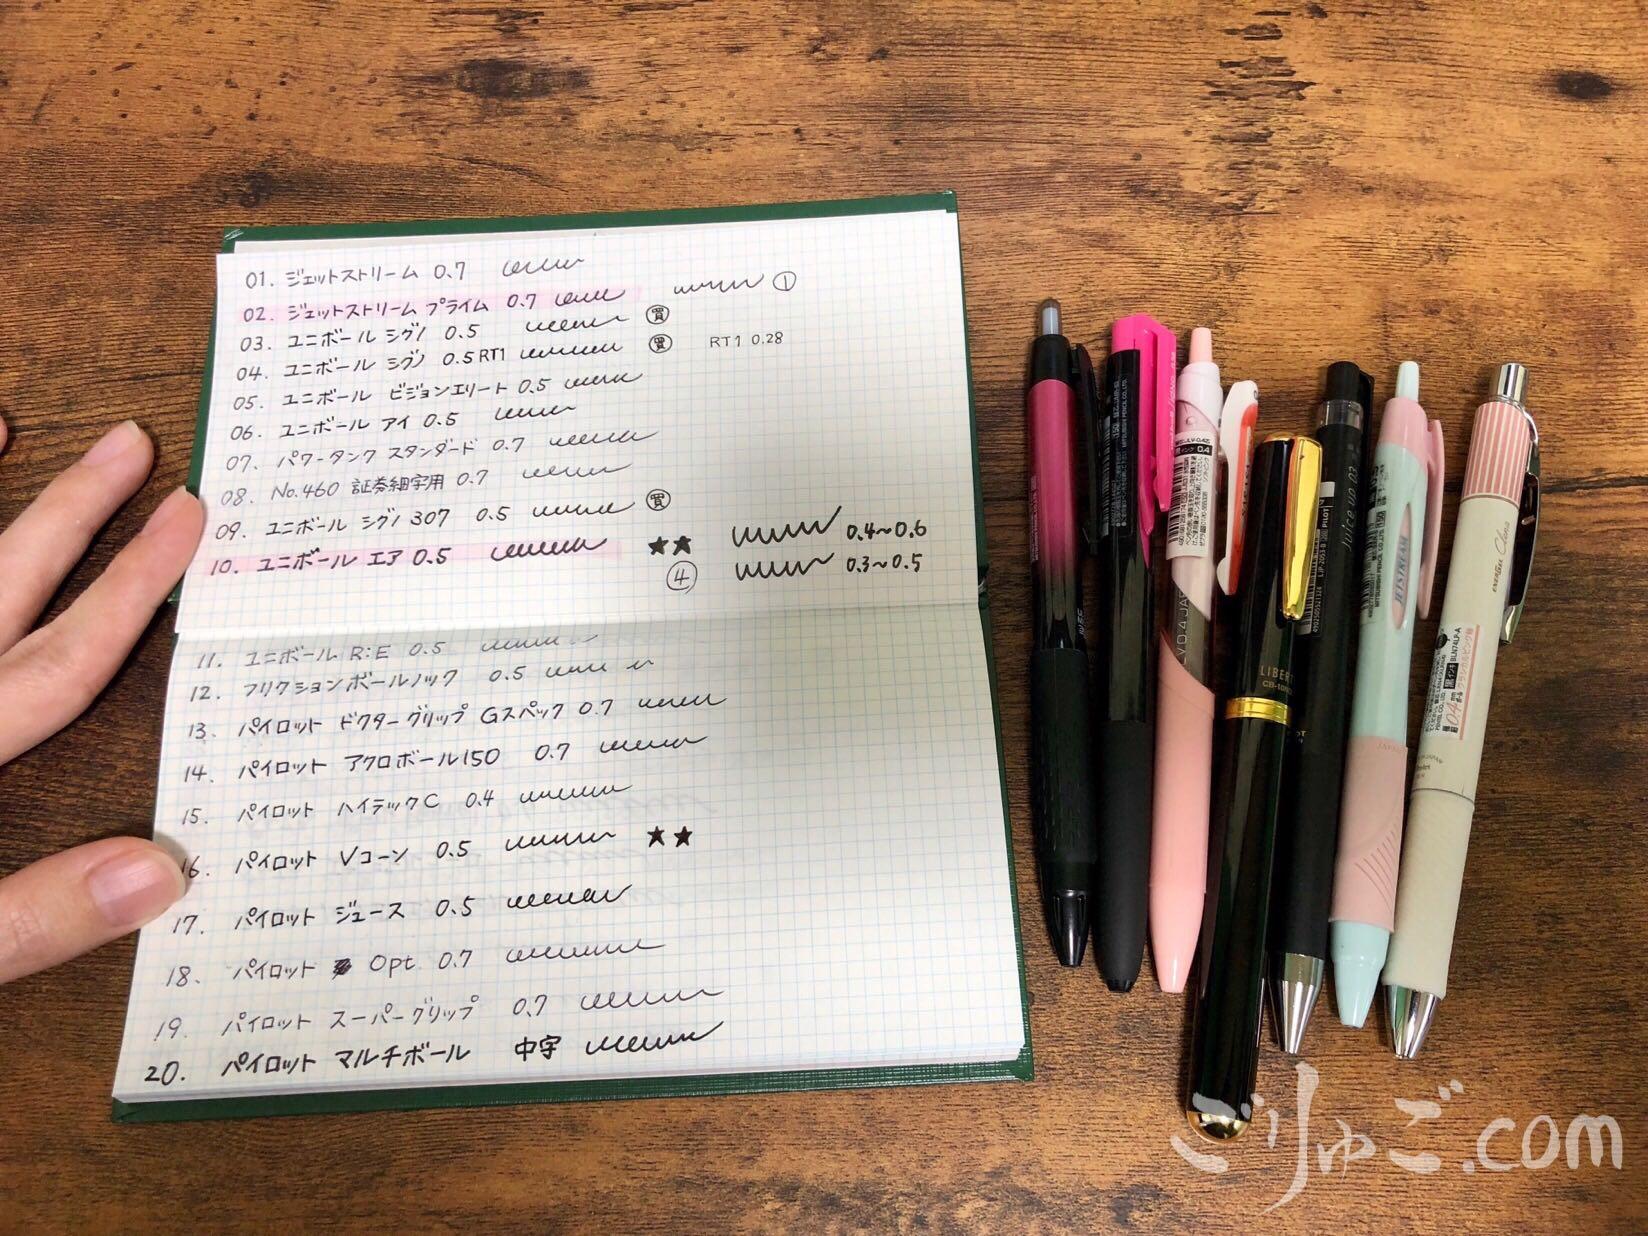 01. ジェットストリーム 0.7
02. ジェットストリーム プライム 0.7 ①
03. ユニボール シグノ 0.5 ㊒
04. ユニボール シグノ 0.5 RT1 RT1 0.28
05. ユニボール ビジョンエリート 0.5
06. ユニボール アイ 0.5
07. パワータンク スタンダード 0.7
08. No.460 証券細字用 0.7
09. ユニボール シグノ 307 0.5
10. ユニボール エア 0.5 ★★ 0.4~0.6
④ 0.3~0.5
11. ユニボール R:E 0.5
12. フリクションボールノック 0.5
13. パイロット ドクターグリップ Gスペック 0.7
14. パイロット アクロボール150 0.7
15. パイロット ハイテックC 0.4
16. パイロット Vコーン 0.5 ★★
17. パイロット ジュース 0.5
18. パイロット Opt 0.7
19. パイロット スーパーグリップ 0.7
20. パイロット マルチボール 中字
0.4
LIBERT
CB-
Juice up 03
PILOT
JETSTREAM
MITSUBISHI PENCIL CO.,LTD.
Clena
黒インキ BLN74LP-A
0.4
ごりゅご.com